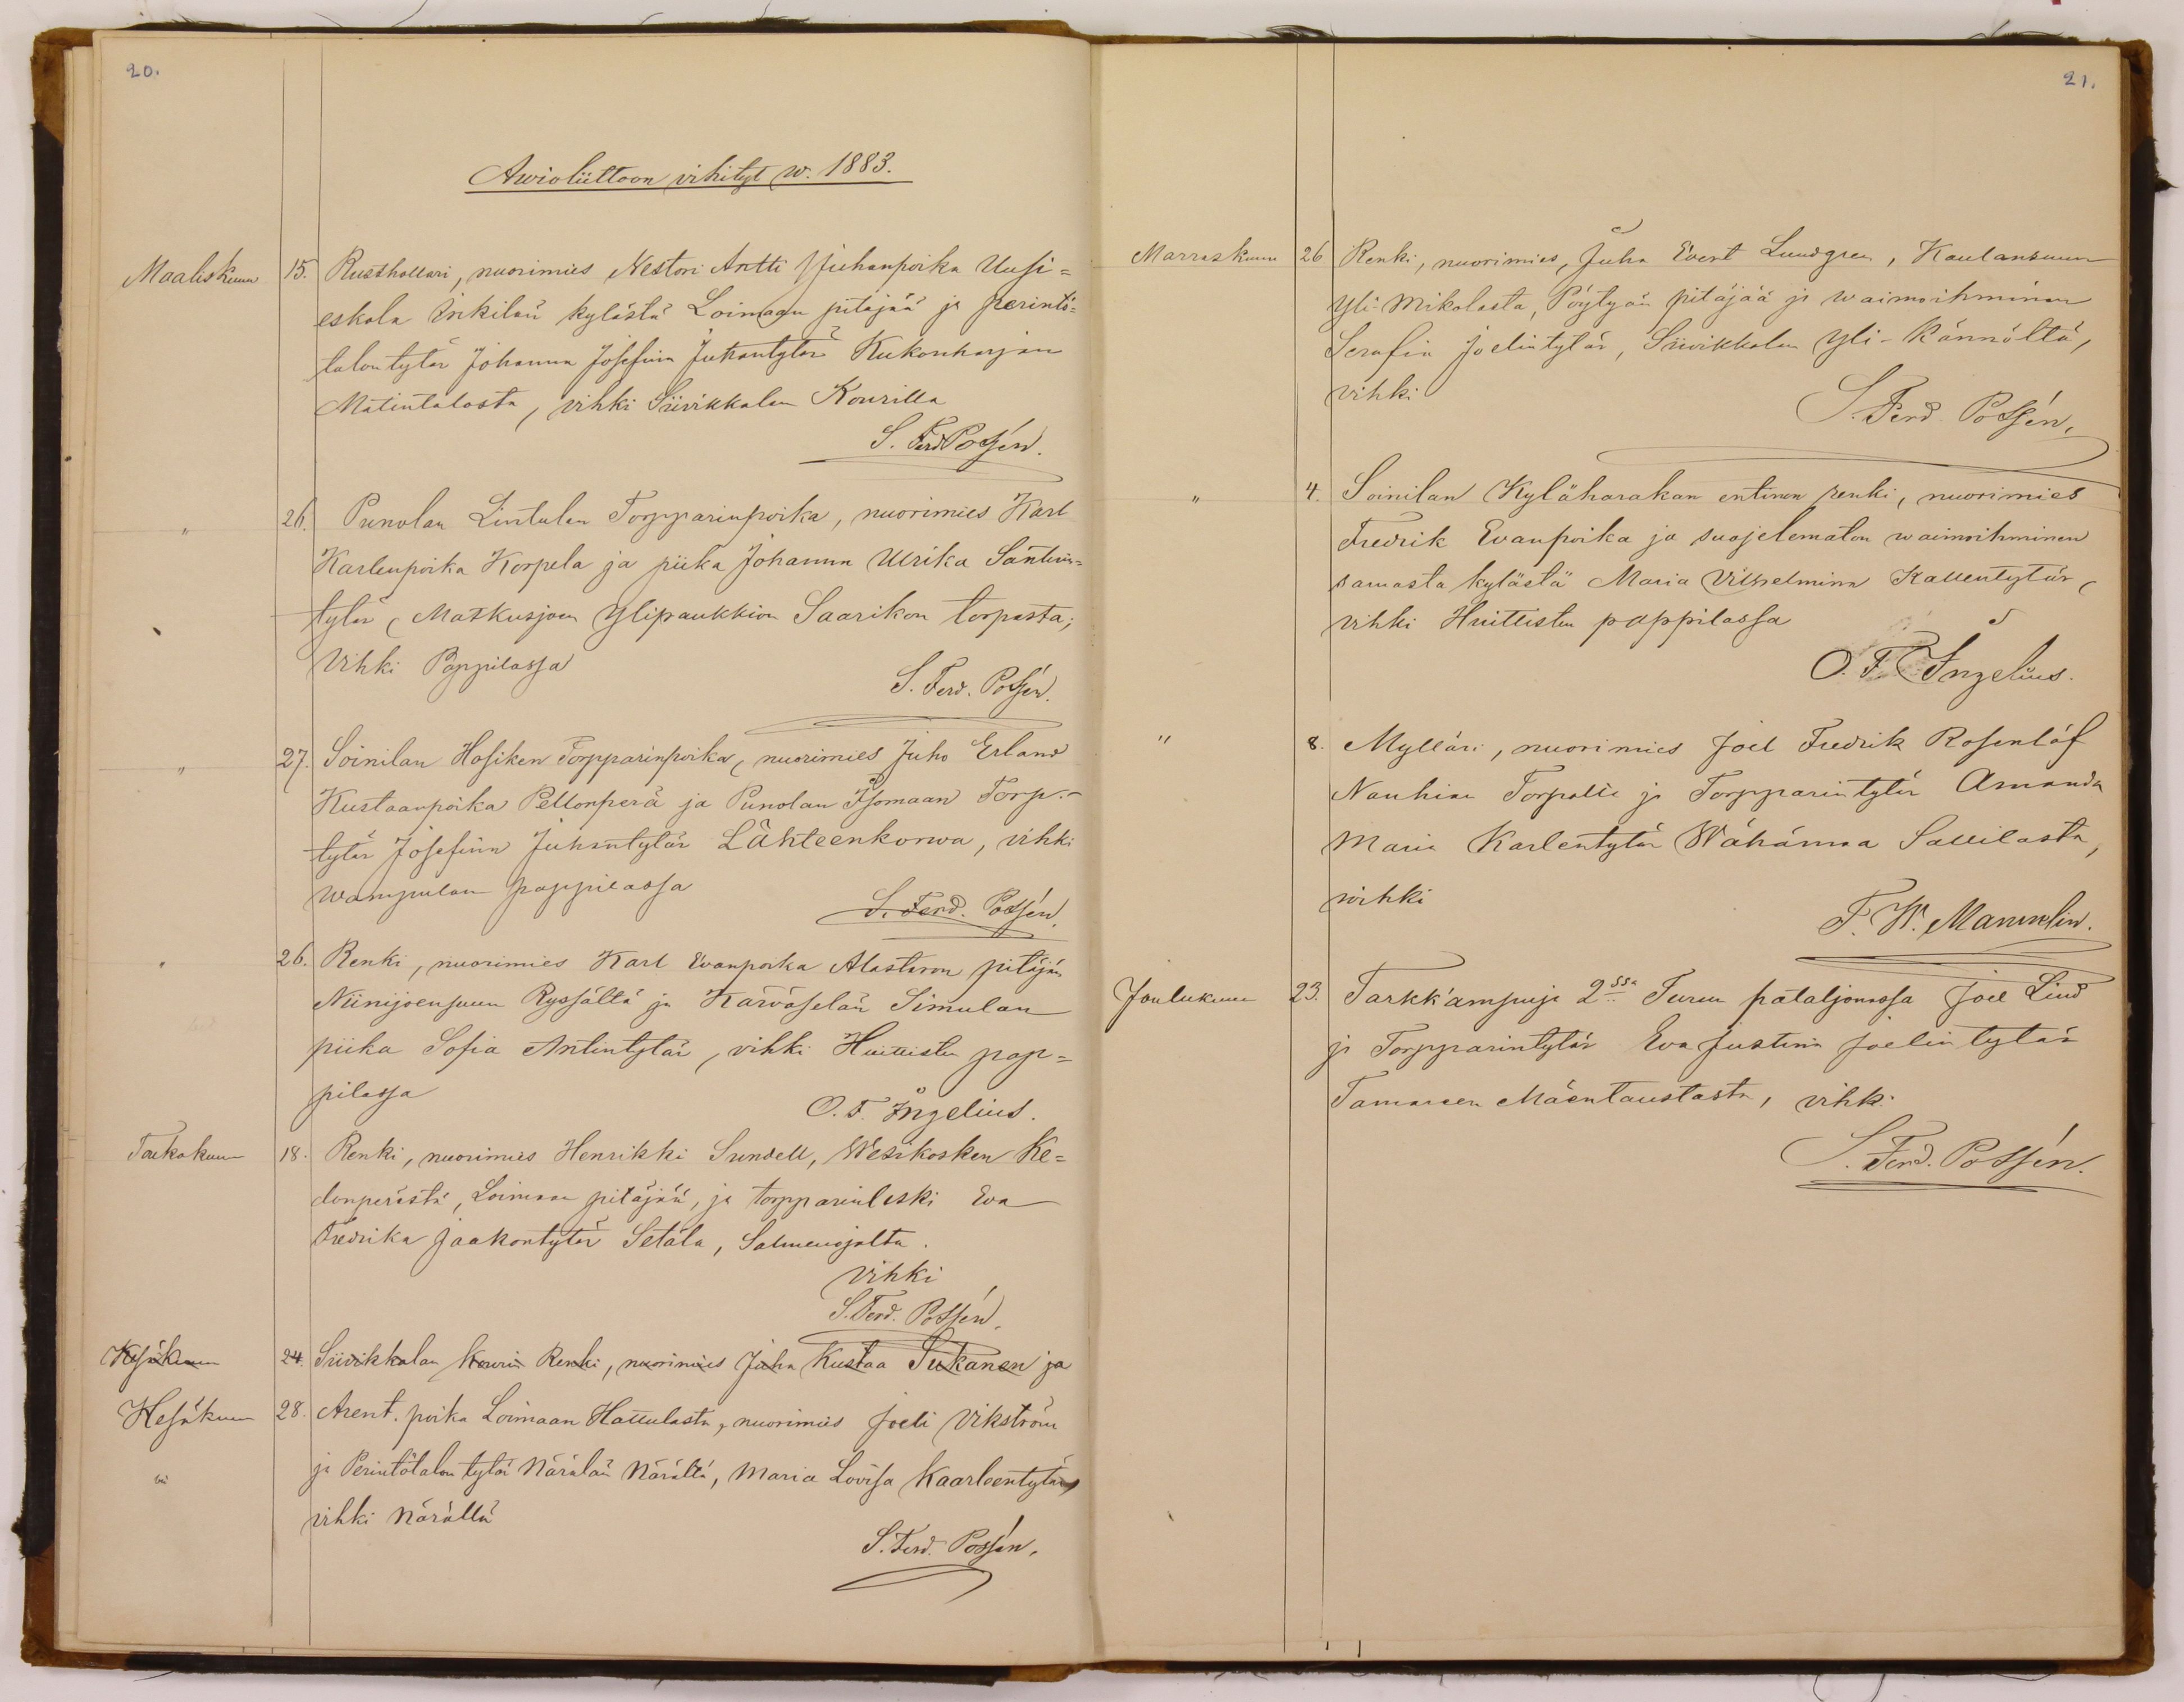 20.
Awioliittoon vihityt w. 1883.
Maaliskuun 15. Rusthollari, nuorimies Nestori Antti Juhanpoika Uusi=
eskola Inkilän kylästä Loimaan pitäjää ja perintö=
talon tytär Johanna Josefiina Juhantytär Kukonharjan
Matintalosta, vihki Siivikkalan Kourilla
S. Ferd Possén.
" 26. Punolan Lintulan Torpparinpoika, nuorimies Karl
Karlenpoika Korpela ja piika Johanna Ulrika Santin=
tytär, Matkusjoen Ylipaukkion Saarikon torpasta;
Vihki Pappilassa
S. Ferd. Possén.
" 27. Soinilan Hosiken Torpparinpoika, nuorimies Juho Erland
Kustaanpoika Pellonperä ja Punolan Isomaan Torp.=
tytär Josefiina Juhantytär Lähteenkorwa, vihki
Wampulan pappilassa
S. Ferd. Possén.
" 26. Renki, nuorimies Karl Evanpoika Alastaron pitäjän
Niinijoensuun Ryssältä ja Karwaselän Simulan
piika Sofia Antintytär, vihki Huittisten pap=
pilassa
O. F. Ingelius.
Toukokuun 18. Renki, nuorimies Henrikki Sundell, Wesikosken Ke=
donperästä, Loimaan pitäjää, ja torpparinleski Eva
Fredrika Jaakontytär Setälä, Salmenojalta.
Vihki
S. Ferd. Possén.
Kesäkuun 24. Siivikkalan Kourin Renki, nuorimies Juha Kustaa Tukanen ja
Kesäkuun 28. Arent. poika Loimaan Hattulasta, nuorimies Joeli Vikström
ja Perintötalon tytär Närälän Närältä, Maria Lovisa Kaarleentytär
vihki Närällä
S. Ferd. Possén.
21.
Marraskuun 26 Renki, nuorimies, Juha Evert Lundgren, Haulansuun
Yli-Mikolasta, Pöytyän pitäjää ja waimoihminen
Serafia Joelintytär, Siivikkalan Yli-Kännöltä,
vihki
S. Ferd. Possén.
" 4. Soinilan Kyläharakan entinen renki, nuorimies
Fredrik Evanpoika ja suojelematon waimoihminen
samasta kylästä Maria Vilhelmina Kallentytär,
vihki Huittisten pappilassa
O. F. Ingelius.
" 8. Mylläri, nuorimies Joel Fredrik Rosenlöf
Nanhian Torpalta ja Torpparintytär Amanda
Maria Karlentytär Wähämaa Sallilasta,
vihki
F. W. Mannelin.
Joulukuun 23. Tarkk'ampuja 2ssa Turun pataljonassa Joel Lind
ja Torpparintytär Eva Justina Joelintytär
Tamareen Mäentaustasta, vihki
S. Ferd. Possén.